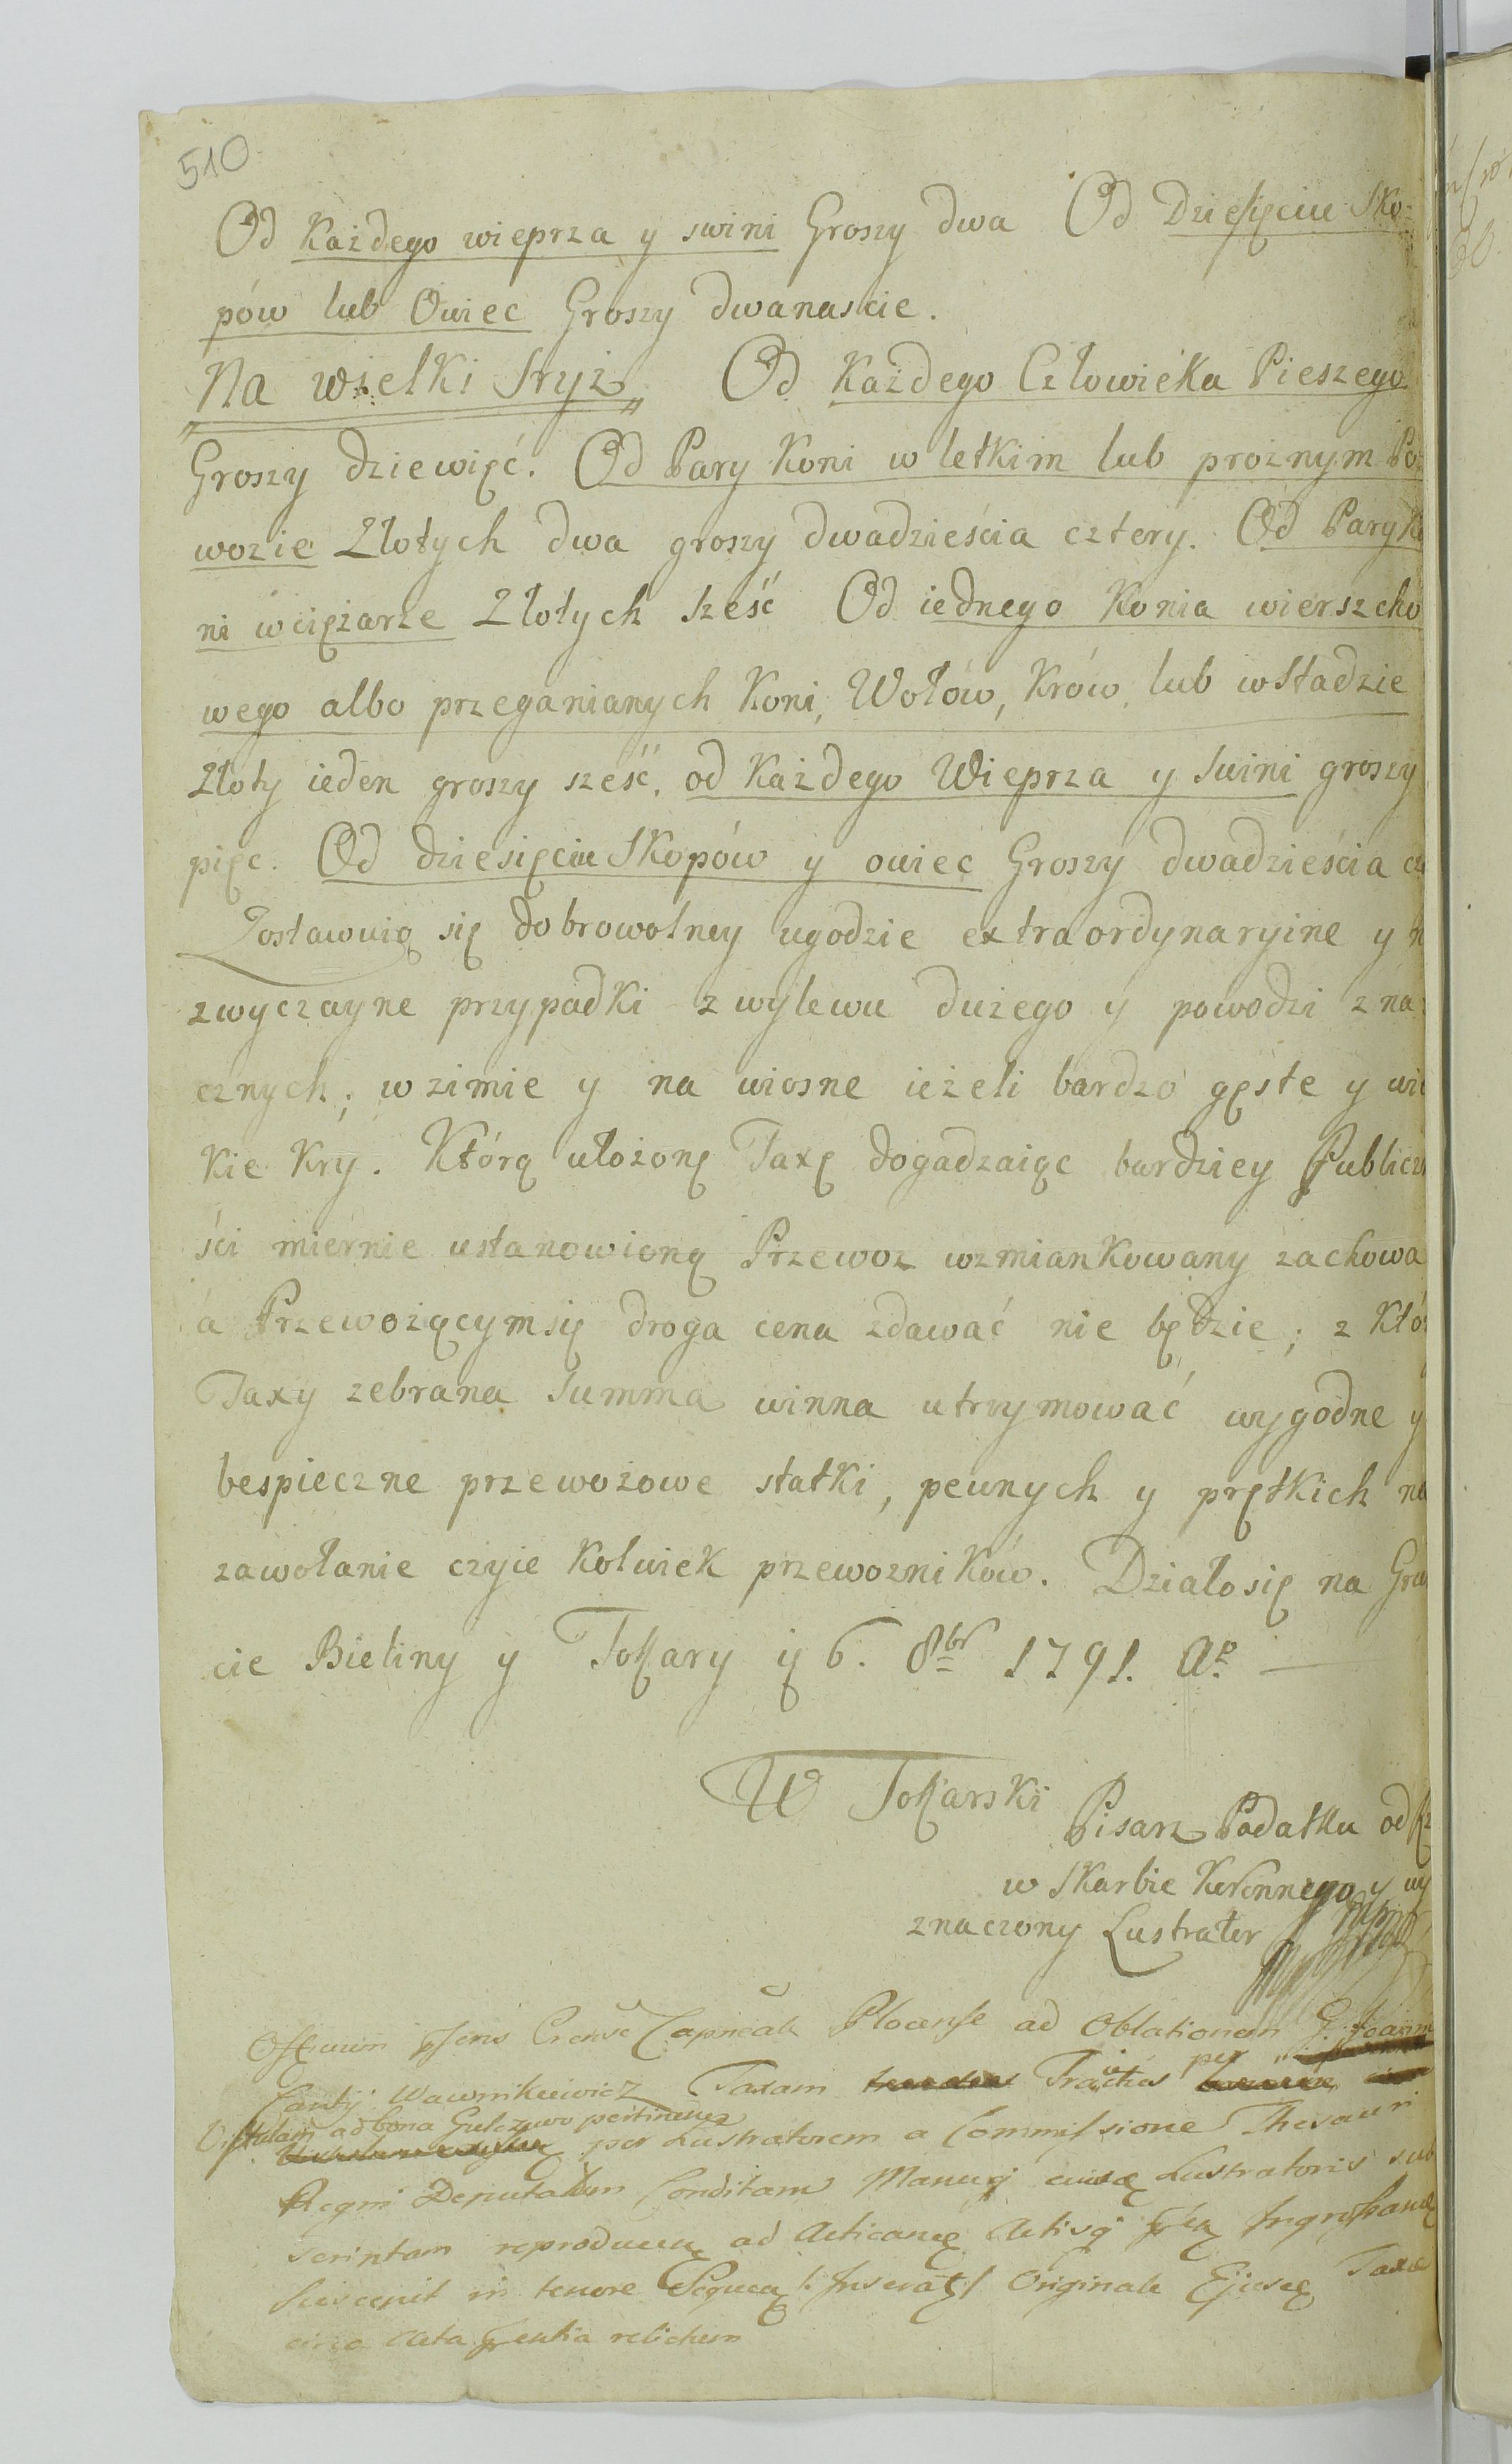 510
Od Każdego wieprza y swini Groszy dwa Od Dziesięciu Sko-
pów lub Owiec Groszy dwanascie.
Na wielki Sryż„ Od Każdego Człowieka Pieszego
Groszy dziewięć. Od Pary Koni w letkim lub prożnym Po-
wozie Złotych dwa groszy dwadzieścia cztery. Od Pary Ko
ni w ciężarze Złotych sześć Od iednego Konia wierszcho
wego albo przeganianych Koni, Wołów, Krów, lub w stadzie
Złoty ieden groszy sześć, od Każdego Wieprza y Swini groszy
pięc. Od dziesięciu Skopów y owiec Groszy dwadzieścia cz
Zostawuią się dobrowolney ugodzie extraordynaryine y n
zwyczayne przypadki z wylewu dużego y powodzi zna-
cznych; w zimie y na wiosne ieżeli bardzo gęste y wie
Kie Kry. Którą ułożoną Taxę dogadzaiąc bardziey Publiczn
ści miernie ustanowioną Przewoz wzmiankowany zachowa
a Przewożącym się droga cena zdawać nie będzie; z Któ
Taxy zebrana Summa winna utrzymować wygodne y
bespieczne przewożowe statki, pewnych y prętkich na
zawołanie czyie Kolwiek przewozników. Działo się na Gru
cie Bieliny y Tokary 6. 8br 1791. Ao
W Tokarski
Pisarz Podatku od
w Skarbie Koronnego y wy
znaczony Lustrator
Officium Plocense ad Oblationem G. Joann
Cantij Wawrnikiewicz Taxam Traictus per
Vistulam ad bona Gulczewo pertinens
per Lustratorem a Commissione Thesauri
Regni Deputatum Conditam Lustratoris sub
scriptam ad Acticand
Suscepit in tenore Originale Taxæ
circa Acta relictum